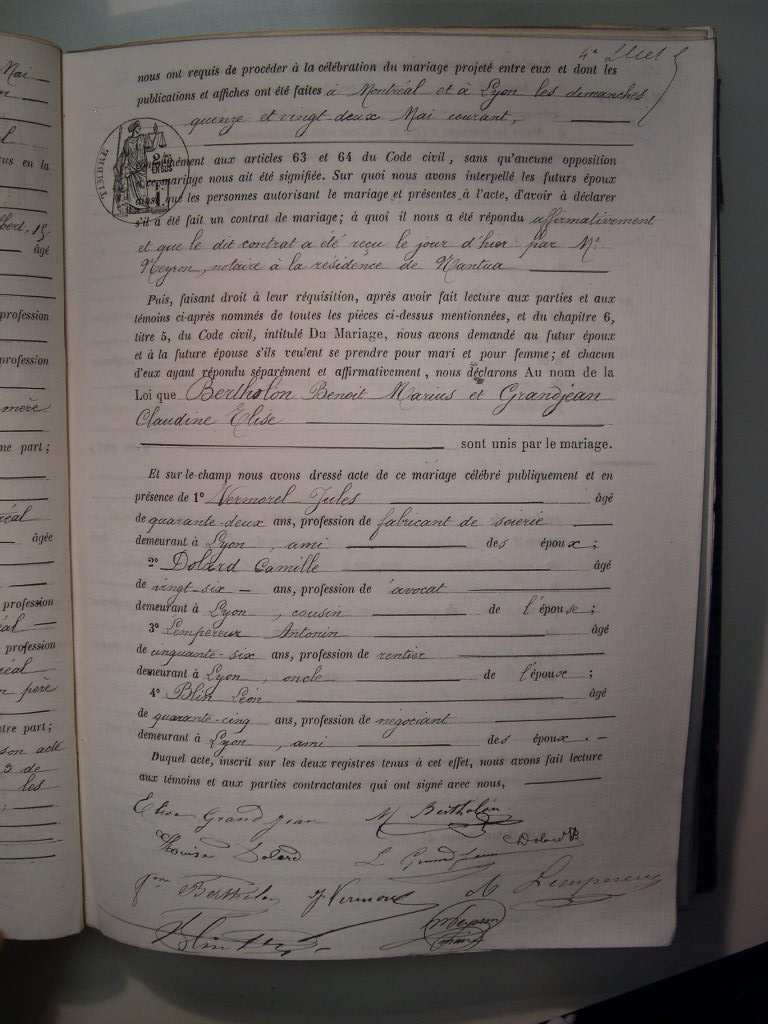 nous ont requis de procéder à la célébration du mariage projeté entre eux et dont les
publications et affiches ont été faites à Montréal et à Lyon les dimanches
quinze et vingt-deux Mai courant,
TIMBRE
conformément aux articles 63 et 64 du Code civil, sans qu'aucune opposition
mariage nous ait été signifiée. Sur quoi nous avons interpellé les futurs époux
que les personnes autorisant le mariage et présentes à l'acte, d'avoir à déclarer
s'il a été fait un contrat de mariage; à quoi il nous a été répondu affirmativement
et que le dit contrat a été reçu le jour d'hier par Me
Neyron, notaire à la résidence de Nantua
Puis, faisant droit à leur réquisition, après avoir fait lecture aux parties et aux
témoins ci-après nommés de toutes les pièces ci-dessus mentionnées, et du chapitre 6,
titre 5, du Code civil, intitulé Du Mariage, nous avons demandé au futur époux
et à la future épouse s'ils veulent se prendre pour mari et pour femme; et chacun
d'eux ayant répondu séparément et affirmativement, nous déclarons Au nom de la
Loi que Bertholon Benoit Marius et Grandjean
Claudine Elise
sont unis par le mariage.
Et sur-le-champ nous avons dressé acte de ce mariage célébré publiquement et en
présence de 1° Vermorel Jules âgé
de quarante-deux ans, profession de fabricant de soierie
demeurant à Lyon, ami des époux;
2° Dolard Camille âgé
de vingt-six ans, profession de avocat
demeurant à Lyon, cousin de l'épouse;
3° Lempereur Antonin âgé
de cinquante-six ans, profession de rentier
demeurant à Lyon, oncle de l'épouse;
4° Blin Léon âgé
de quarante-cinq ans, profession de négociant
demeurant à Lyon, ami des époux.
Duquel acte, inscrit sur les deux registres tenus à cet effet, nous avons fait lecture
aux témoins et aux parties contractantes qui ont signé avec nous,
Elise Grandjean M Bertholon
Louise Dolard L. Grandjean Dolard
Bertholon J Vermorel A Lempereur
Blin